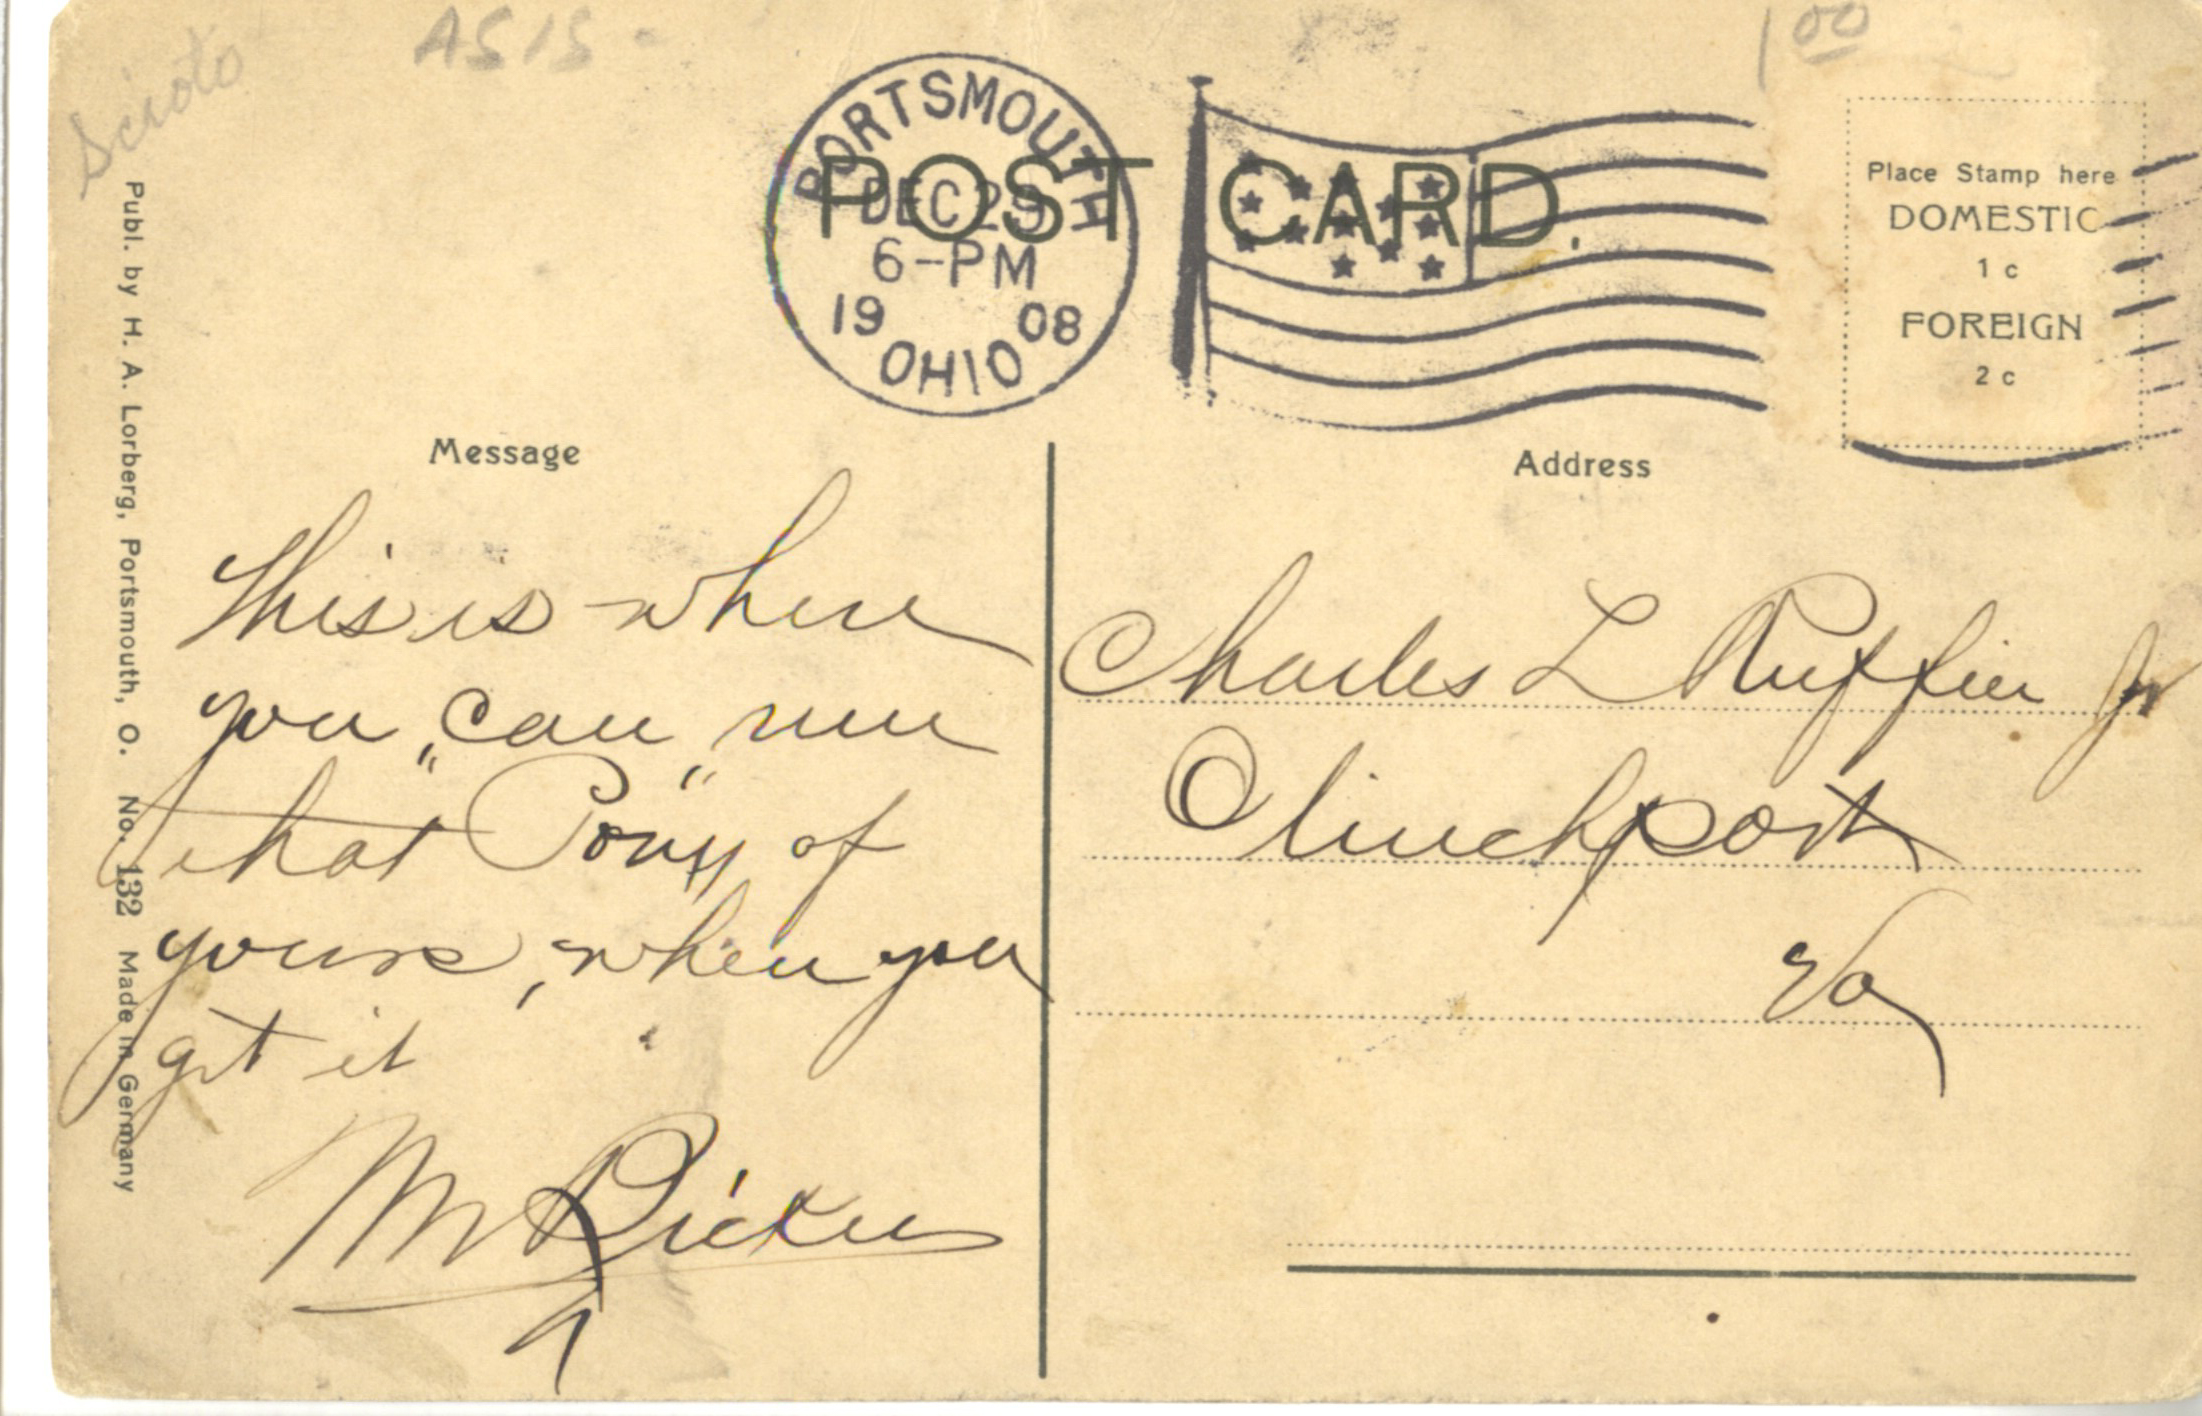 Scioto
AS IS -
1 00
PORTSMOUTH
DEC 2
6-PM
19 08
OHIO
POST CARD.
Place Stamp here
DOMESTIC
1 c
FOREIGN
2 c
Publ. by H. A. Lorberg, Portsmouth, O. No. 132 Made in Germany
Message
This is where
you "can" run
that Pony of
yours, when you
get it
Address
Charles L Ruffin Jr
Clinchport
Va